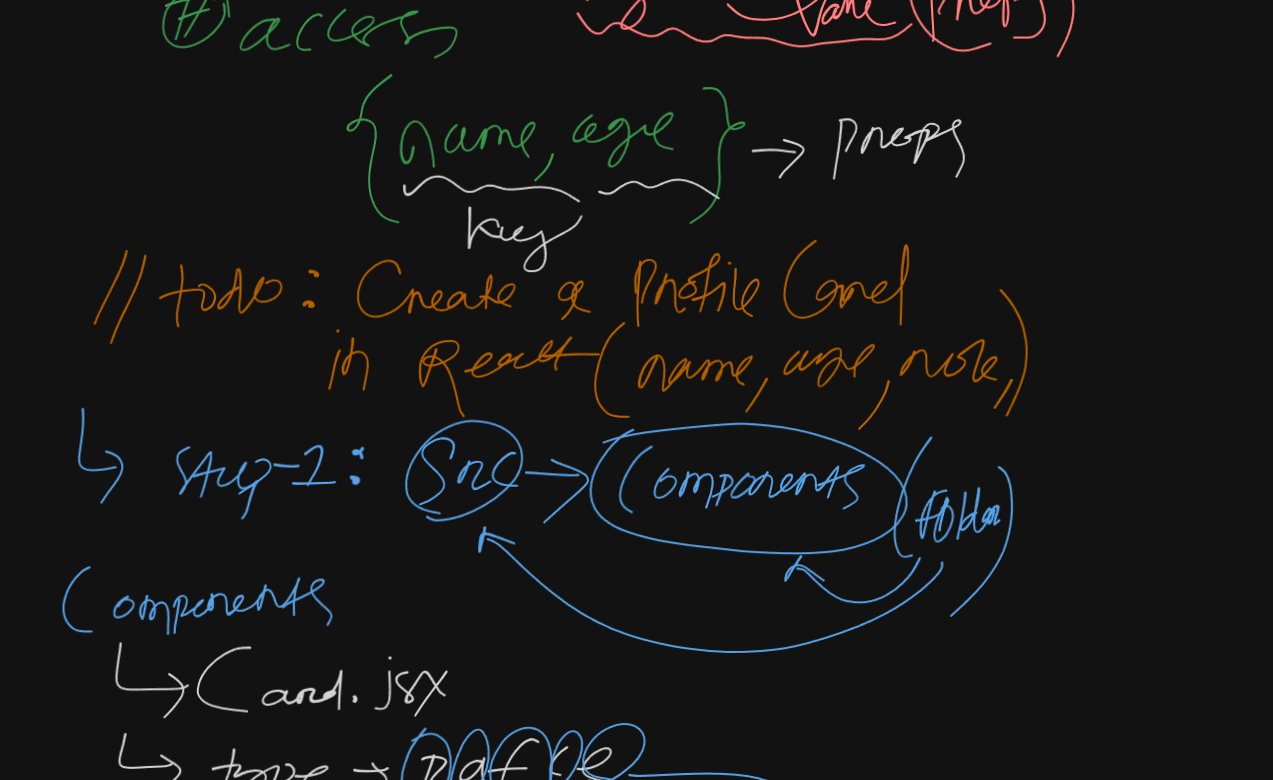 # access take (Props)
{name, age} → Props
key
// todo: Create a Profile Card
in React (name, age, role,)
↳ Step-1: Src → Components (folder)
Components
↳ Card.jsx
↳ type → rafce